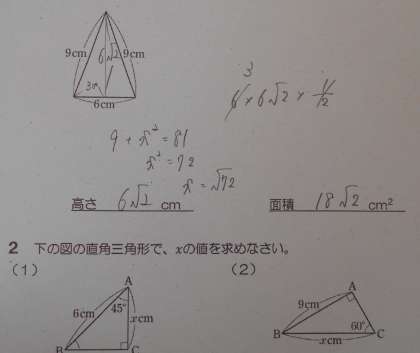 9cm 6√2 9cm
3
6cm
3
6 × 6√2 × 1/2
9 + x² = 81
x² = 72
x = √72
高さ 6√2 cm 面積 18√2 cm²
2 下の図の直角三角形で、xの値を求めなさい。
(1) (2)
A A
6cm 45° xcm 9cm
60°
B C B xcm C